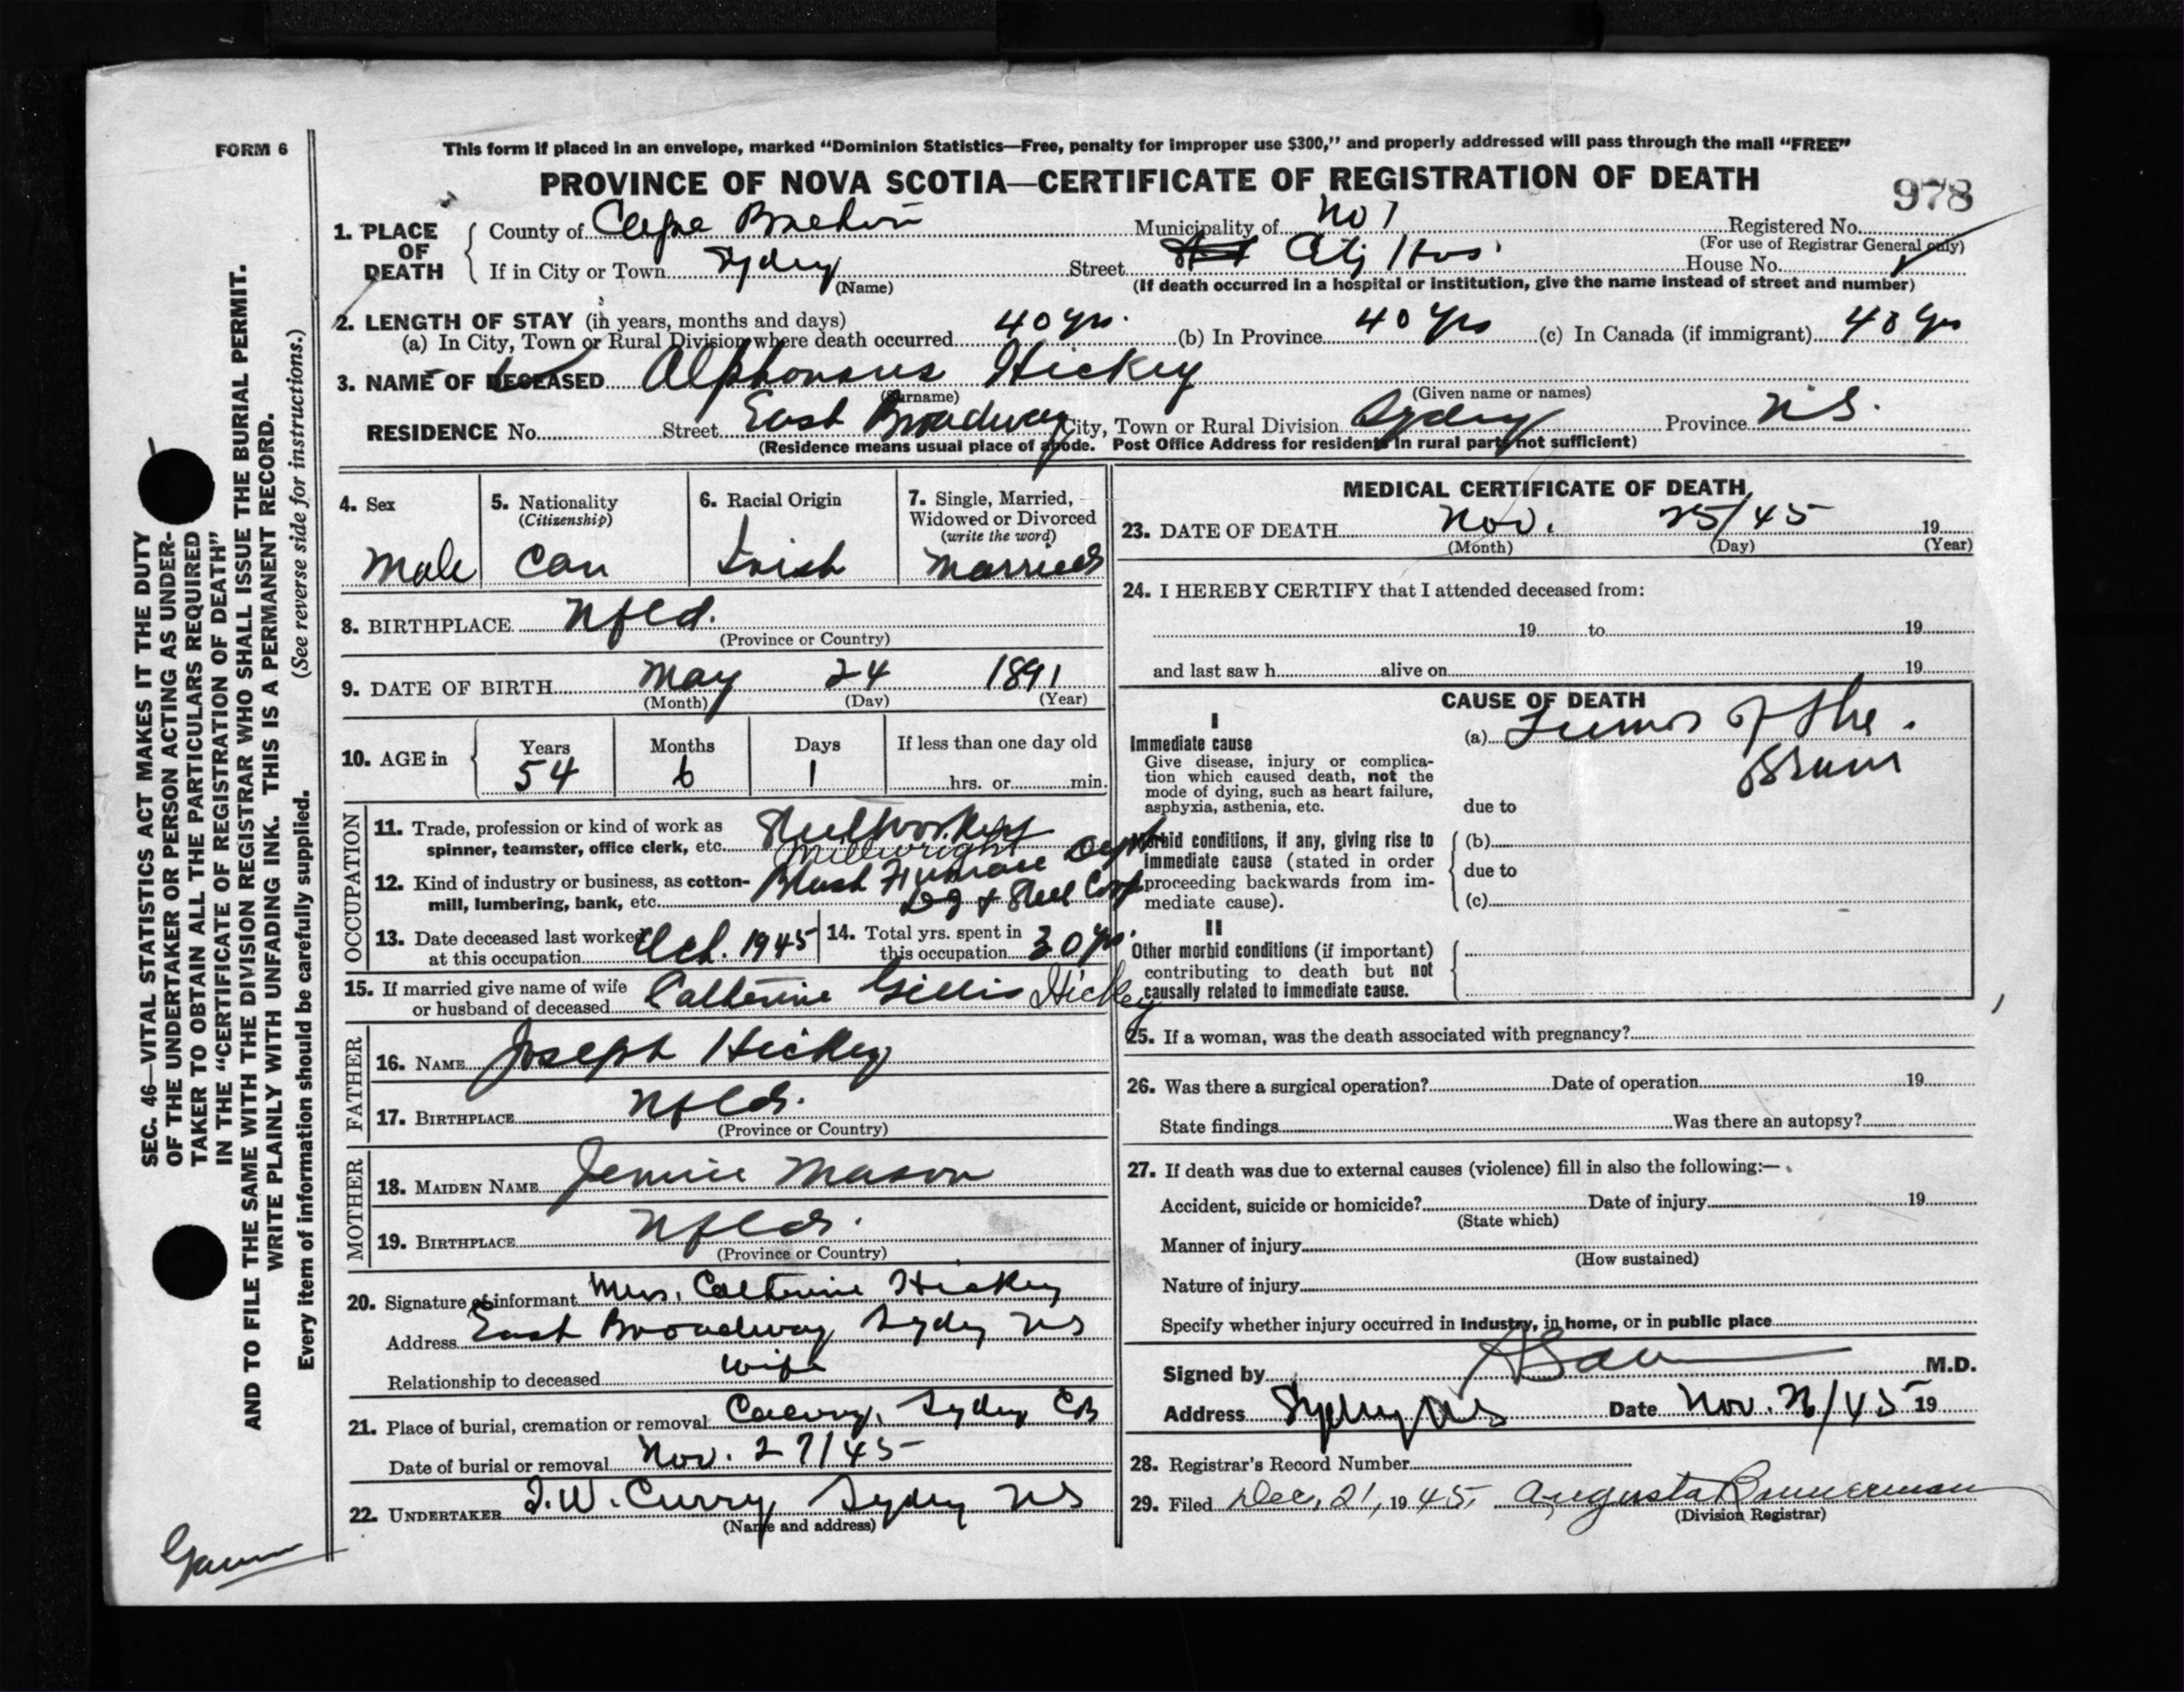 FORM 6
This form if placed in an envelope, marked “Dominion Statistics—Free, penalty for improper use $300,” and properly addressed will pass through the mail “FREE”
PROVINCE OF NOVA SCOTIA—CERTIFICATE OF REGISTRATION OF DEATH
978
1. PLACE OF DEATH
County of Cape Breton Municipality of No 1 Registered No.
(For use of Registrar General only)
If in City or Town Sydney Street City Hos House No.
(Name) (If death occurred in a hospital or institution, give the name instead of street and number)
2. LENGTH OF STAY (in years, months and days)
(a) In City, Town or Rural Division where death occurred 40 yrs. (b) In Province 40 yrs (c) In Canada (if immigrant) 40 yrs
3. NAME OF DECEASED Alphonsus Hickey
(Surname) (Given name or names)
RESIDENCE No. Street East Broadway City, Town or Rural Division Sydney Province N.S.
(Residence means usual place of abode. Post Office Address for residents in rural parts not sufficient)
4. Sex
Male
5. Nationality
(Citizenship)
Can
6. Racial Origin
Irish
7. Single, Married,
Widowed or Divorced
(write the word)
Married
8. BIRTHPLACE Nfld.
(Province or Country)
9. DATE OF BIRTH May 24 1891
(Month) (Day) (Year)
10. AGE in
Years Months Days If less than one day old
54 6 1 hrs. or min.
OCCUPATION
11. Trade, profession or kind of work as Steelworker
spinner, teamster, office clerk, etc. Millwright
12. Kind of industry or business, as cotton- Blast Furnace Dept
mill, lumbering, bank, etc. & Steel Corp
13. Date deceased last worked
at this occupation Oct. 1945
14. Total yrs. spent in
this occupation 30 yrs.
15. If married give name of wife
or husband of deceased Catherine Gillis Hickey
FATHER
16. NAME Joseph Hickey
17. BIRTHPLACE Nfld.
(Province or Country)
MOTHER
18. MAIDEN NAME Jennie Mason
19. BIRTHPLACE Nfld.
(Province or Country)
20. Signature of informant Mrs. Catherine Hickey
Address East Broadway Sydney NS
Relationship to deceased wife
21. Place of burial, cremation or removal Calvary, Sydney CB
Date of burial or removal Nov. 27/45
22. UNDERTAKER J.W. Curry Sydney NS
(Name and address)
MEDICAL CERTIFICATE OF DEATH
23. DATE OF DEATH Nov. 25/45 19
(Month) (Day) (Year)
24. I HEREBY CERTIFY that I attended deceased from:
19 to 19
and last saw h alive on 19
CAUSE OF DEATH
I
Immediate cause
Give disease, injury or complica-
tion which caused death, not the
mode of dying, such as heart failure,
asphyxia, asthenia, etc.
(a) Tumor of the
Brain
due to
Morbid conditions, if any, giving rise to
immediate cause (stated in order
proceeding backwards from im-
mediate cause).
(b)
due to
(c)
II
Other morbid conditions (if important)
contributing to death but not
causally related to immediate cause.
25. If a woman, was the death associated with pregnancy?
26. Was there a surgical operation? Date of operation 19
State findings Was there an autopsy?
27. If death was due to external causes (violence) fill in also the following:—
Accident, suicide or homicide? Date of injury 19
(State which)
Manner of injury
(How sustained)
Nature of injury
Specify whether injury occurred in industry, in home, or in public place
Signed by M.D.
Address Sydney NS Date Nov. 26/45 19
28. Registrar's Record Number
29. Filed Dec. 21, 1945. Augusta Bannerman
(Division Registrar)
SEC. 46—VITAL STATISTICS ACT MAKES IT THE DUTY
OF THE UNDERTAKER OR PERSON ACTING AS UNDER-
TAKER TO OBTAIN ALL THE PARTICULARS REQUIRED
IN THE “CERTIFICATE OF REGISTRATION OF DEATH”
AND TO FILE THE SAME WITH THE DIVISION REGISTRAR WHO SHALL ISSUE THE BURIAL PERMIT.
WRITE PLAINLY WITH UNFADING INK. THIS IS A PERMANENT RECORD.
Every item of information should be carefully supplied. (See reverse side for instructions.)